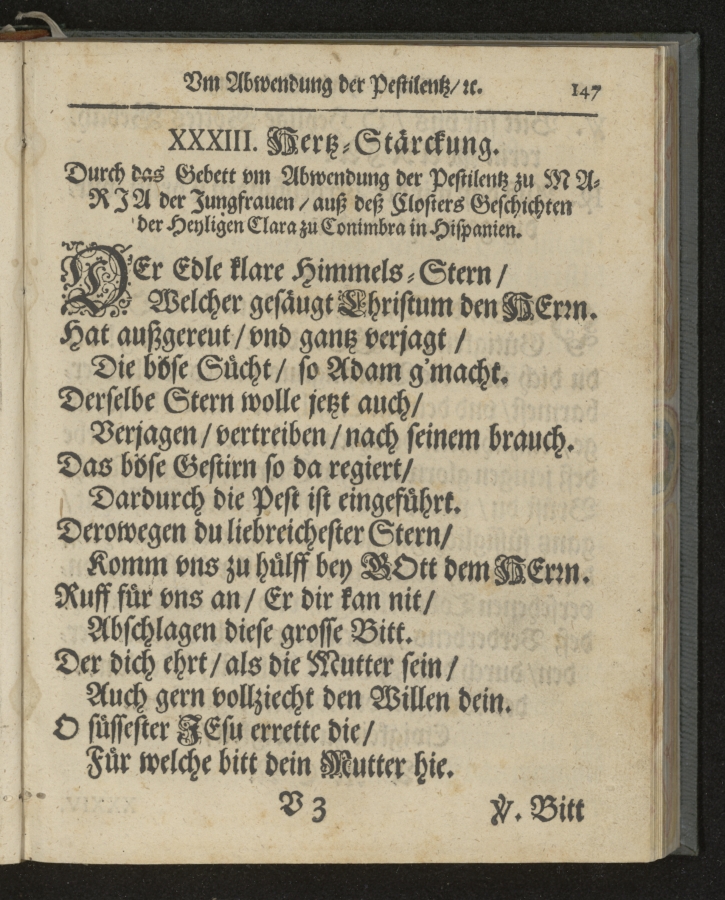 Vm Abwendung der Pestilentz/ ꝛc. 147
XXXIII. Hertz-Stärckung.
Durch das Gebett vm Abwendung der Pestilentz zu MA-
RJA der Jungfrauen / auß deß Closters Geschichten
der Heyligen Clara zu Conimbra in Hispanien.
DEr Edle klare Himmels-Stern /
Welcher gesäugt Christum den HErrn.
Hat außgereut / vnd gantz verjagt /
Die böse Sücht / so Adam g'macht.
Derselbe Stern wolle jetzt auch/
Verjagen / vertreiben / nach seinem brauch.
Das böse Gestirn so da regiert/
Dardurch die Pest ist eingeführt.
Derowegen du liebreichester Stern/
Komm vns zu hülff bey GOtt dem HErrn.
Ruff für vns an / Er dir kan nit/
Abschlagen diese grosse Bitt.
Der dich ehrt / als die Mutter sein /
Auch gern vollziecht den Willen dein.
O süssester JEsu errette die /
Für welche bitt dein Mutter hie.
V 3 ℣. Bitt